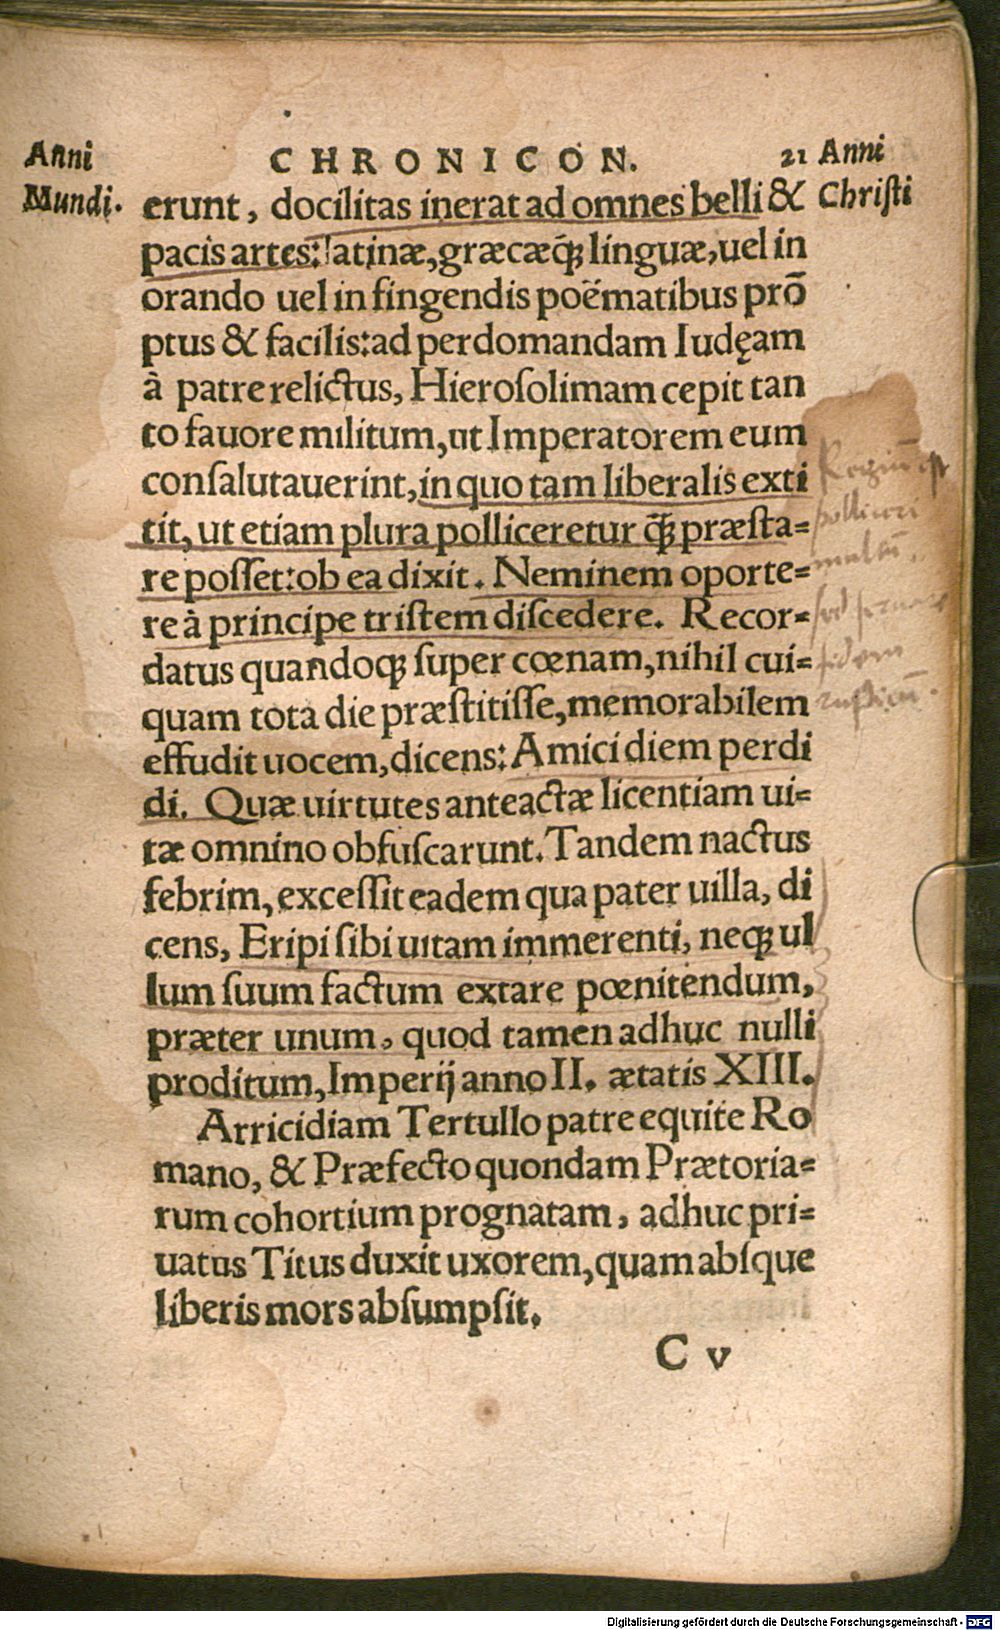 Anni
Mundi.
CHRONICON.
21 Anni
Christi
erunt, docilitas inerat ad omnes belli &
pacis artes: latinæ, græcæq̃ꝫ linguæ, uel in
orando uel in fingendis poëmatibus prō
ptus & facilis: ad perdomandam Iudęam
à patre relictus, Hieroſolimam cepit tan
to fauore militum, ut Imperatorem eum
conſalutauerint, in quo tam liberalis exti
tit, ut etiam plura polliceretur q̃ꝫ præſta=
re poſſet: ob ea dixit. Neminem oporte=
re à principe triſtem diſcedere. Recor=
datus quandoqꝫ ſuper cœnam, nihil cui=
quam tota die præſtitiſſe, memorabilem
effudit uocem, dicens: Amici diem perdi
di. Quæ uirtutes anteactæ licentiam ui=
tæ omnino obfuſcarunt. Tandem nactus
febrim, exceſſit eadem qua pater uilla, di
cens, Eripi ſibi uitam immerenti, neqꝫ ul
lum ſuum factum extare pœnitendum,
præter unum, quod tamen adhuc nulli
proditum, Imperij anno II. ætatis XIII.
Arricidiam Tertullo patre equite Ro
mano, & Præfecto quondam Prætoria=
rum cohortium prognatam, adhuc pri=
uatus Titus duxit uxorem, quam abſque
liberis mors abſumpſit.
C v
Regiũ
polliceri
multũ.
sed
fidem
rusticũ.
Digitalisierung gefördert durch die Deutsche Forschungsgemeinschaft - DFG